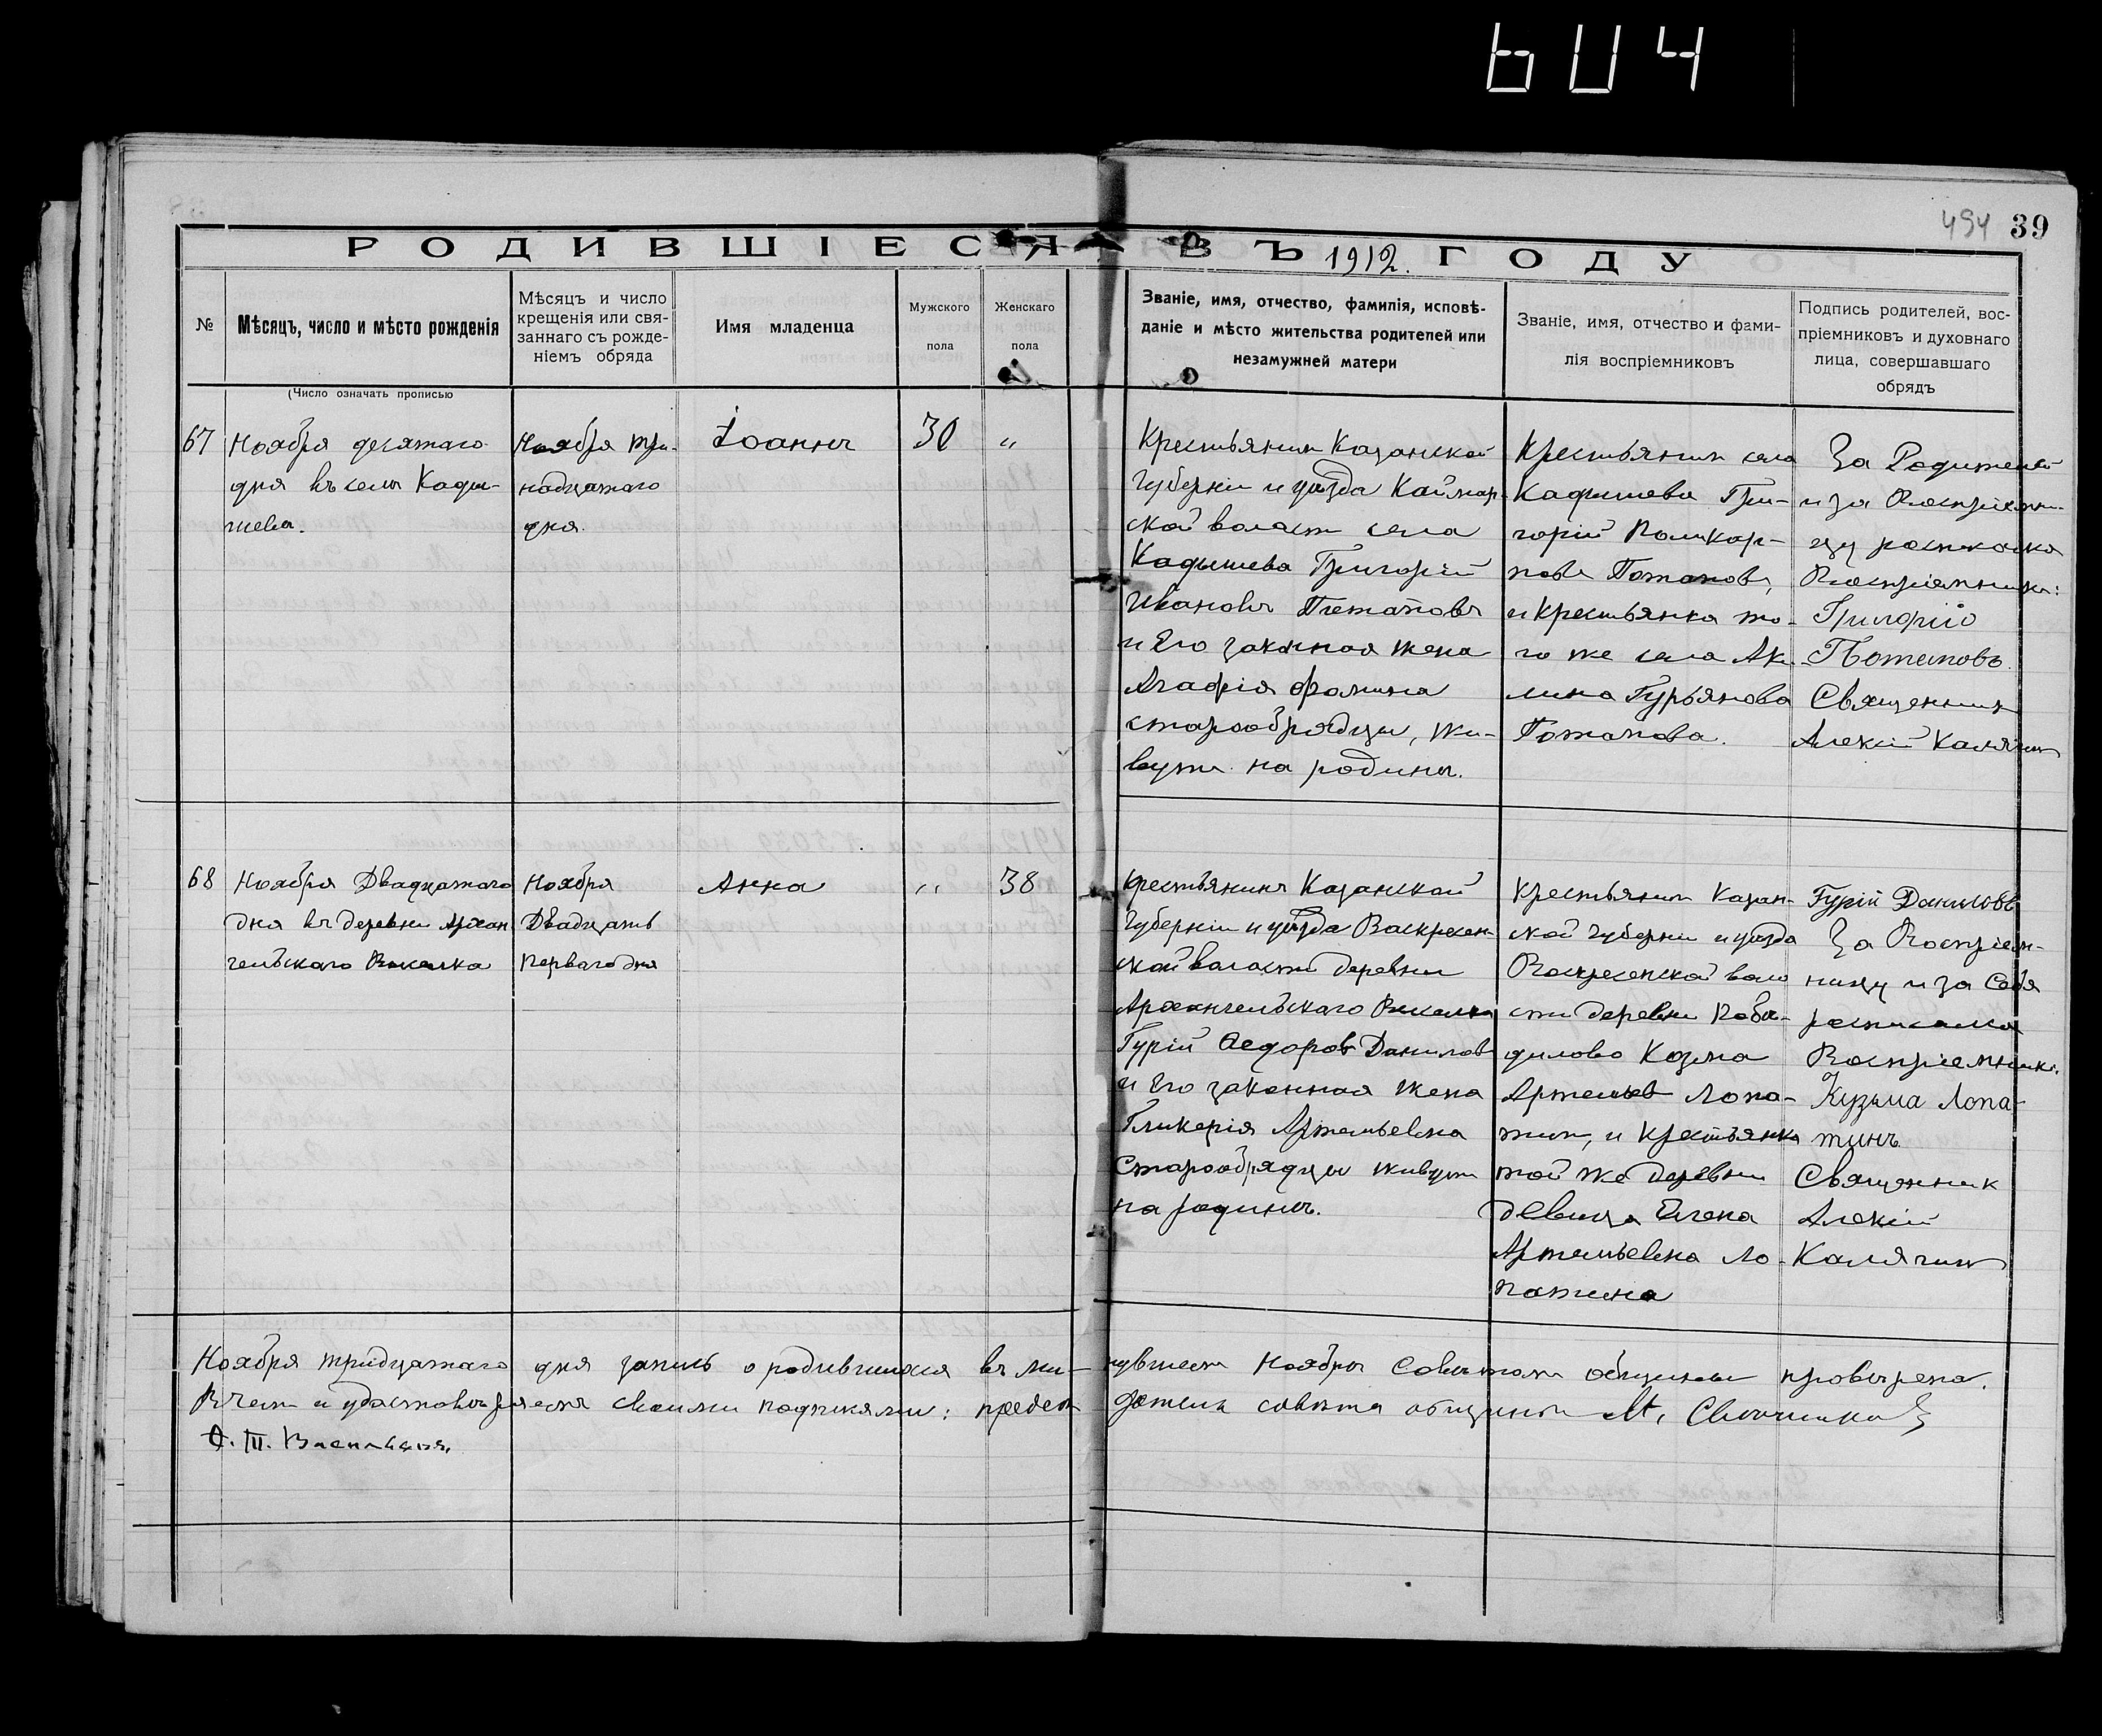 604
494 39
РОДИВШІЕСЯ ВЪ 1912. ГОДУ
№
Мѣсяцъ, число и мѣсто рожденія
(Число означать прописью
Мѣсяцъ и число
крещенія или свя-
заннаго съ рожде-
ніемъ обряда
Имя младенца
Мужского
пола
Женскаго
пола
Званіе, имя, отчество, фамилія, исповѣ-
даніе и мѣсто жительства родителей или
незамужней матери
Званіе, имя, отчество и фами-
лія воспріемниковъ
Подпись родителей, вос-
пріемниковъ и духовнаго
лица, совершавшаго
обрядъ
67
Ноября десятаго
дня въ селѣ Кады-
шева.
Ноября три-
надцатаго
дня.
Іоаннъ
30
„
Крестьянинъ Казанской
Губерніи и уѣзда Каймар-
ской воласти села
Кадышева Григорій
Ивановъ Потаповъ
и Его законная жена
Агафія Фомина
старообрядцы, жи-
вутъ на родинѣ.
Крестьянин села
Кадышева Гри-
горій Поликар-
повъ Потаповъ,
и крестьянка то-
го же села Аку-
лина Гурьянова
Потапова.
За Родителей
и за Воспріемни-
цу росписался
Воспріемникъ:
Григорій
Потаповъ.
Священник
Алексій Калягин
68
Ноября Двадцатаго
дня въ деревни Архан
гельскаго Виселка
Ноября
Двадцать
перваго дня
Анна
„
38
крестьянинъ Казанской
Губерніи и уѣзда Васкресен
ской валасти деревни
Архангельскаго Виселка
Гурій Федоровъ Данилов
и Его законная жена
Гликерія Артемьевна
Старообрядцы живут
на родинѣ.
Крестьянин Казан-
ской губерни и уѣзда
Воскресенской воло
сти деревни Поба-
дилово Козма
Артемьев Лопа-
тин, и крестьянка
той же деревни
девица Елена
Артемьевна Ло-
патина
Гурій Данилов
За Воспріем-
ницу и за Себя
росписался
Воспріемникъ:
Кузьма Лопа-
тинъ.
Священник
Алексій
Калягин
Ноября тридцатаго дня запись о родившихся въ ми- нувшем Ноябрѣ Совѣтом общины провѣрена.
В чем и удастовѣряем своими подписями: предсѣ дотель совѣта общины М.
Васильевъ.